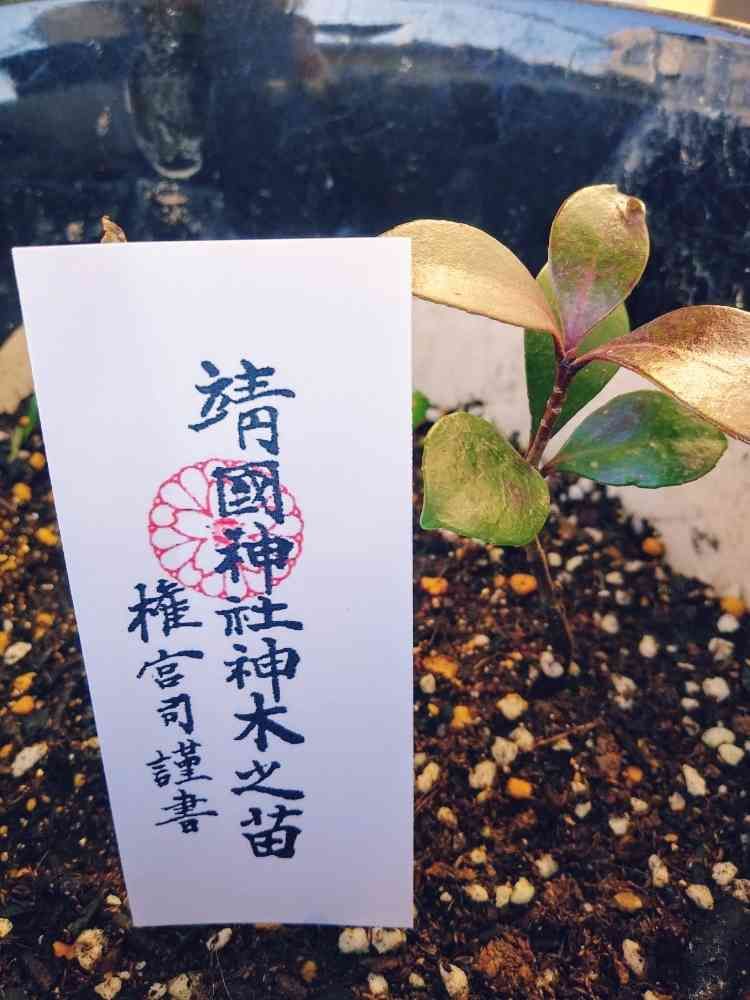 靖國神社神木之苗
権宮司謹書